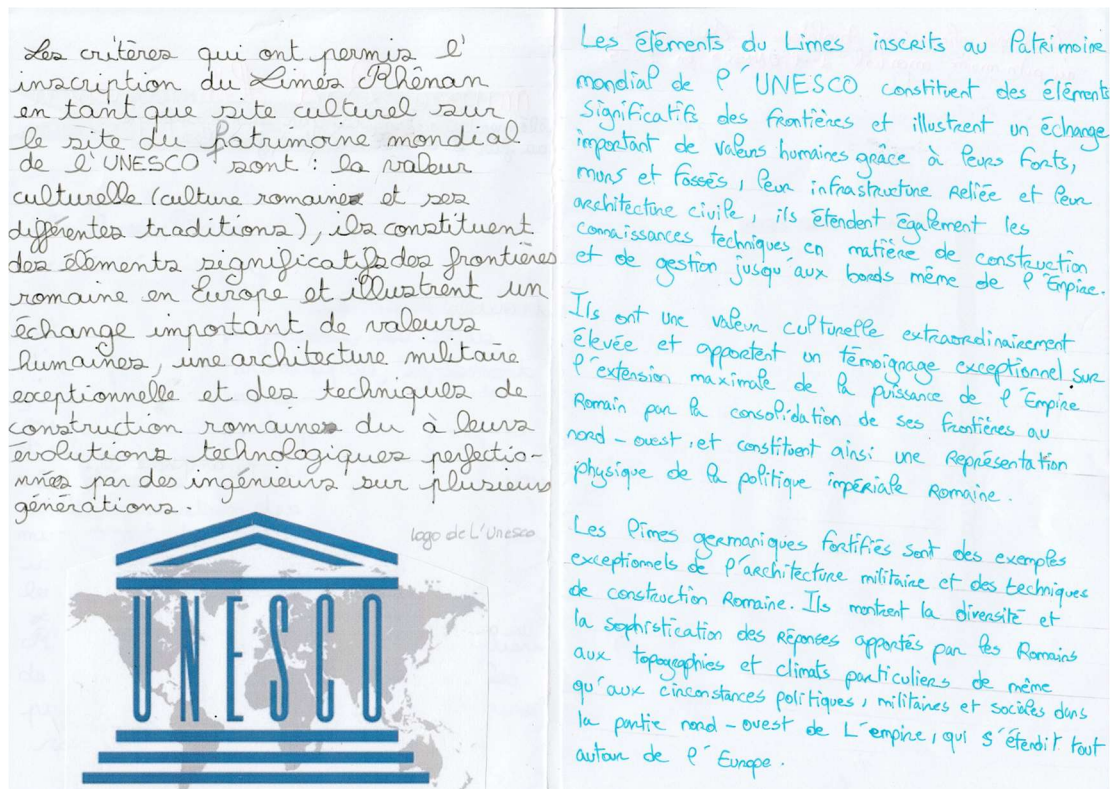 Les critères qui ont permis l'
inscription du Limes Rhénan
en tant que site culturel sur
le site du patrimoine mondial
de l'UNESCO sont : la valeur
culturelle (culture romaine et ses
différentes traditions), ils constituent
des éléments significatifs des frontières
romaine en Europe et illustrent un
échange important de valeurs
humaines, une architecture militaire
exceptionnelle et des techniques de
construction romaines du à leurs
évolutions technologiques perfectio-
nnées par des ingénieurs sur plusieurs
générations.
logo de L'Unesco
UNESCO
Les éléments du Limes inscrits au Patrimoine
mondial de l'UNESCO constituent des éléments
significatifs des frontières et illustrent un échange
important de valeurs humaines grâce à leurs forts,
murs et fossés, leur infrastructure reliée et leur
architecture civile, ils étendent également les
connaissances techniques en matière de construction
et de gestion jusqu'aux bords même de l'Empire.
Ils ont une valeur culturelle extraordinairement
élevée et apportent un témoignage exceptionnel sur
l'extension maximale de la puissance de l'Empire
Romain par la consolidation de ses frontières au
nord-ouest, et constituent ainsi une représentation
physique de la politique impériale Romaine.
Les limes germaniques fortifiés sont des exemples
exceptionnels de l'architecture militaire et des techniques
de construction Romaine. Ils montrent la diversité et
la sophistication des réponses apportés par les Romains
aux topographies et climats particuliers de même
qu'aux circonstances politiques, militaires et sociales dans
la partie nord-ouest de L'empire, qui s'étendit tout
autour de l'Europe.